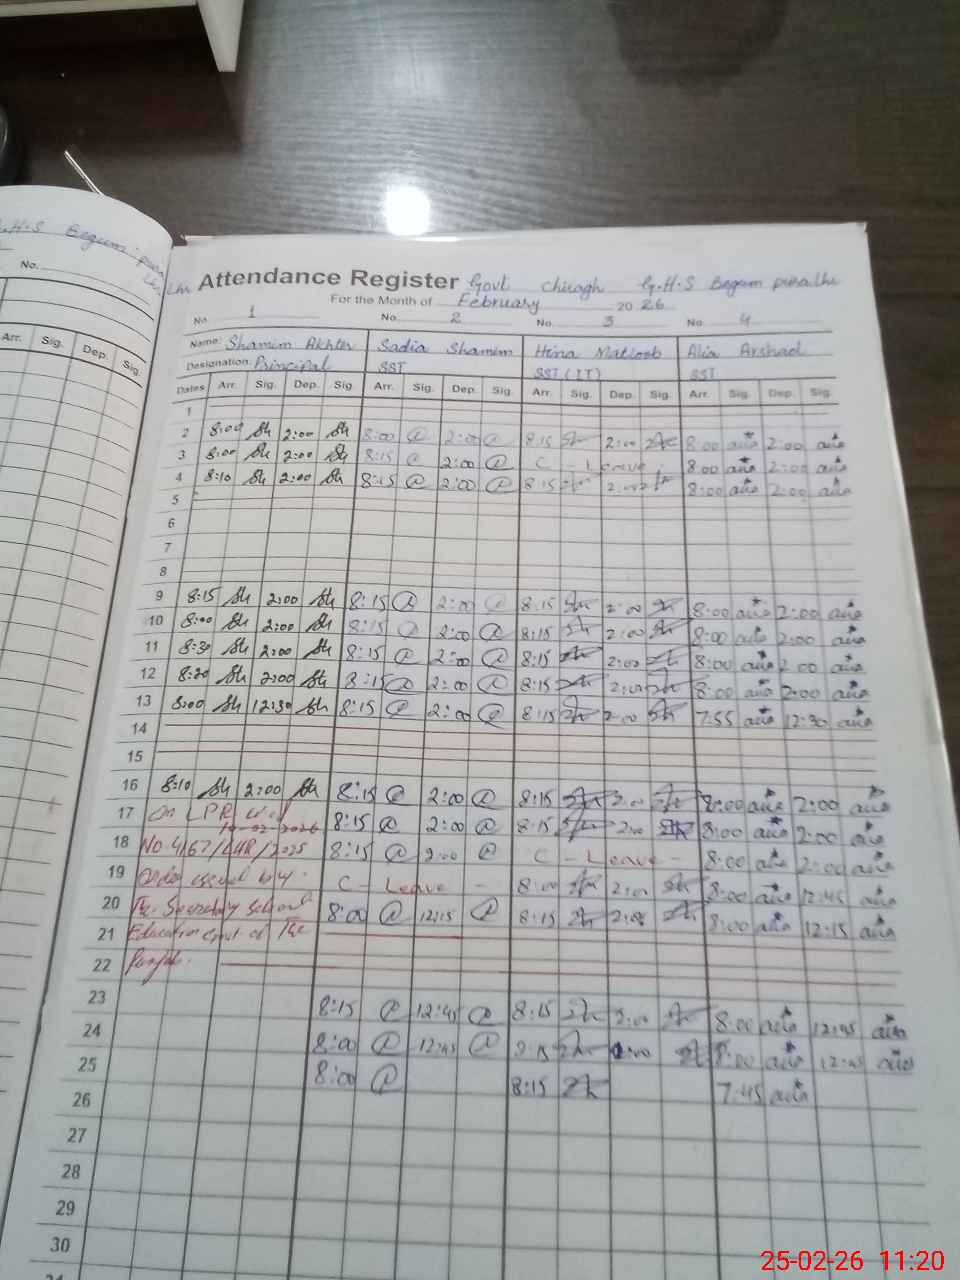 G.H.S Begum pura
Lhr
No.
Arr. Sig. Dep. Sig.
Attendance Register Govt Chiragh G.H.S Begum pura Lhr
For the Month of February 2026
No 1 No. 2 No. 3 No. 4
Name: Shamim Akhter Sadia Shamim Hina Matloob Alia Arshad
Designation: Principal SST SST (IT) SST
Dates Arr. Sig. Dep. Sig. Arr. Sig. Dep. Sig. Arr. Sig. Dep. Sig. Arr. Sig. Dep. Sig.
1
2 8:09 Sh 2:00 Sh 8:00 2:00 8:15 2:00 8:00 2:00
3 8:00 Sh 2:00 Sh 8:15 2:00 C - Leave 8:00 2:00
4 8:10 Sh 2:00 Sh 8:15 2:00 8:15 2:00 8:00 2:00
5
6
7
8
9 8:15 Sh 2:00 Sh 8:15 2:00 8:15 2:00 8:00 2:00
10 8:00 Sh 2:00 Sh 8:15 2:00 8:15 2:00 8:00 2:00
11 8:30 Sh 2:00 Sh 8:15 2:00 8:15 2:00 8:00 2:00
12 8:20 Sh 2:00 Sh 8:15 2:00 8:15 2:00 8:00 2:00
13 8:00 Sh 12:30 Sh 8:15 2:00 8:15 2:00 7:55 12:30
14
15
16 8:10 Sh 2:00 Sh 8:15 2:00 8:15 2:00 8:00 2:00
17 On LPR w.e.f 8:15 2:00 8:15 2:00 8:00 2:00
18 No 4167/LHR/2025 8:15 2:00 C - Leave - 8:00 2:00
19 Order issued by. C - Leave - 8:00 2:00 8:00 12:45
20 The Secretary School 8:00 12:15 8:15 2:00 8:00 12:15
21 Education Govt of The
22 Punjab.
23 8:15 12:45 8:15 2:00 8:00 12:45
24 8:00 12:45 8:15 8:00 12:45
25 8:00 8:15 7:45
26
27
28
29
30
31
25-02-26 11:20